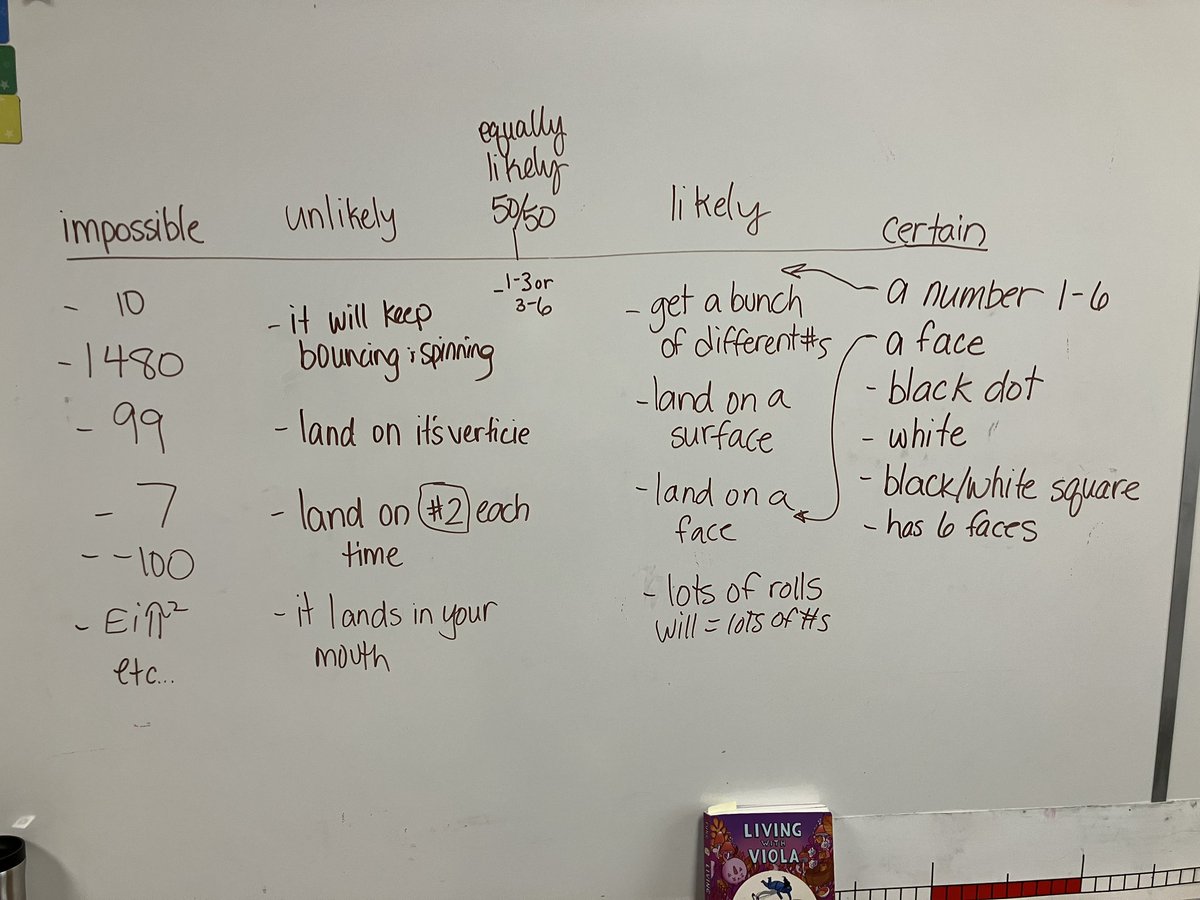 equally
likely
50/50
impossible
unlikely
likely
certain
- 10
- 1480
- 99
- 7
- -100
- Eiπ²
etc...
- it will keep
bouncing & spinning
- land on it's verticie
- land on #2 each
time
- it lands in your
mouth
- 1-3 or
3-6
- get a bunch
of different #s
- land on a
surface
- land on a
face
- lots of rolls
will = lots of #s
- a number 1-6
- a face
- black dot
- white "
- black/white square
- has 6 faces
LIVING
WITH
VIOLA
LIVING